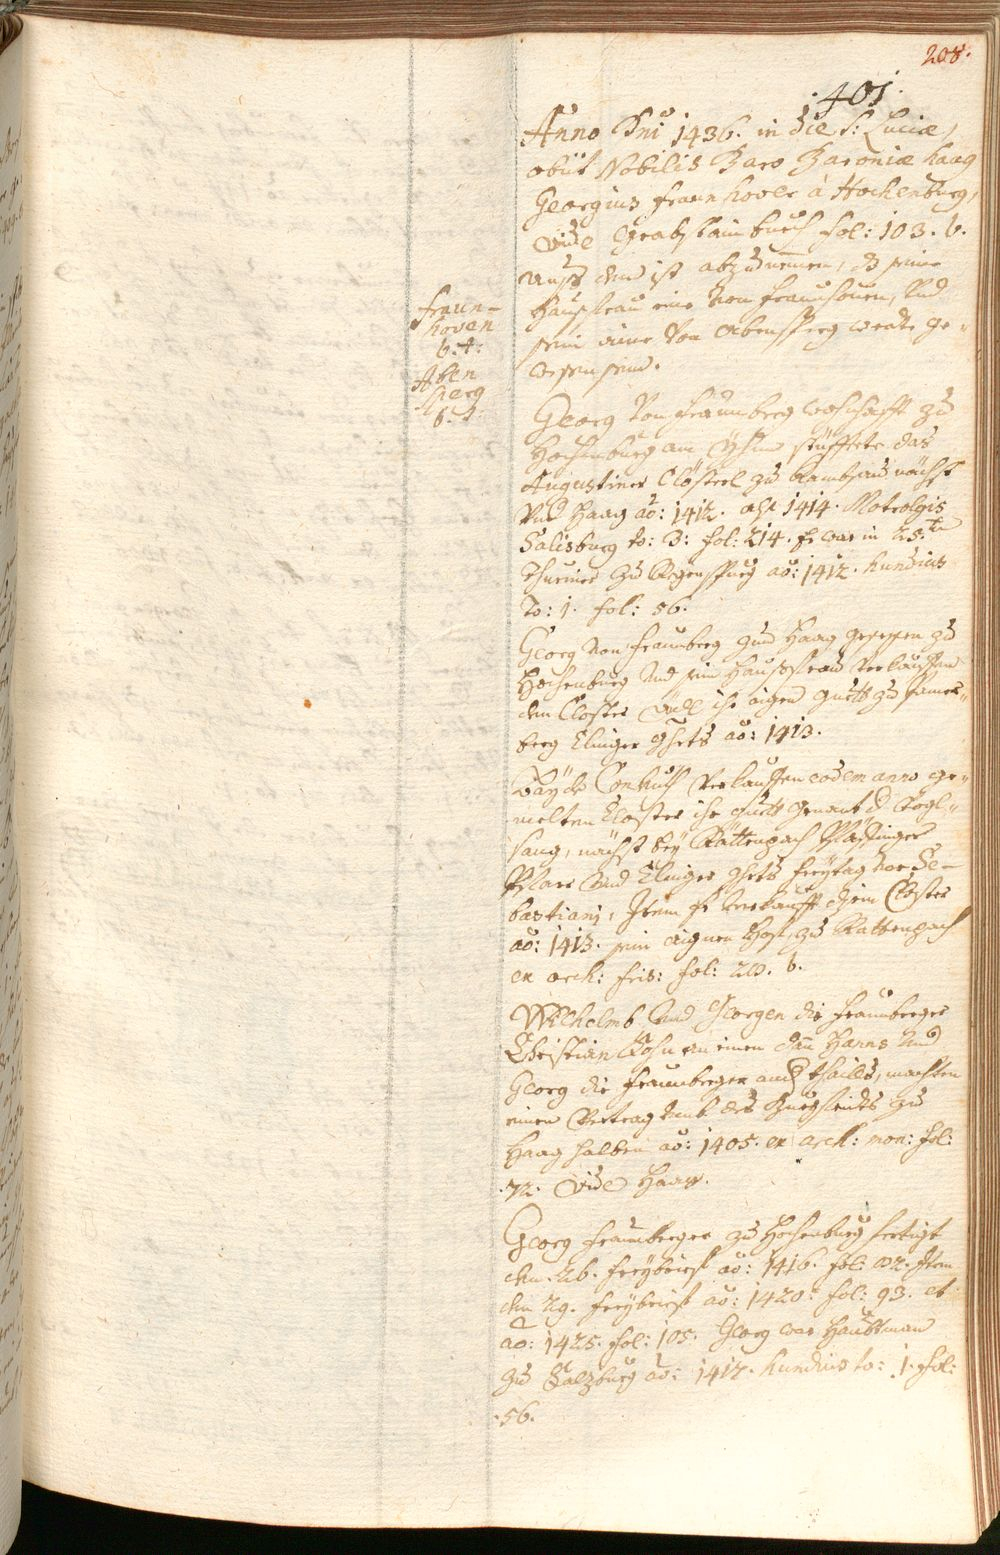 208.
.401.
Anno Dni 1436. in die S: Luciæ,
obiit Nobilis Baro Baroniæ haag
Georgius fraunhover à Hochenburg,
vide Grabstainbuech fol: 103. b.
auss dem ist abzunemen, dz seine
Hausfrau eine von fraunhouen, Vnd
sein aine von Abensperg werdt ge-
wesen sein.
fraun-
hoven
b. t:
Aben
sperg
b. t:
Georg von fraunberg woshafft zu
Hochenburg am Yhn stüfftete das
Augustiner Clösterl zu Rambsau nächst
Vnd Haag aō: 1412. ast 1414. Metrolgis
Salisburg to: 3: fol: 214. Er war in 25.ten
Thurnier zu Regenspurg aō: 1412. hundius
To: 1. fol: 56.
Georg von fraunberg zum Haag gesessen zu
Hochenburg Vnd sein Hausfrau verkauffen
dem Closter ihr aigen guett zu
berg Clinger ghrts aō: 1413.
verkauffen eodem anno ge-
melten Closter ihr guett genant d Vogl-
sang, nächst bey Rättenpach
Pfarr Vnd Clinger ghrts freytag vor Se-
bastiani, Item Er verkaufft dem Closter
aō: 1413. sein aignen Hof zu Rattenpach
ex arch: fris: fol: 210. b.
Wilhelmb Vnd Georgen die fraunberger
Christian Sohn an einem dan Hanns Vnd
Georg die fraunberger and thaills, machten
einen Vertrag vmb des Burgfridts zu
Haag halben aō: 1405. ex arch: mon: fol:
.72. vide Haag.
Georg fraunberger zu Hochenburg fertigt
den .26. freybrief aō: 1416. fol: 92. Item
den 29. freybrief aō: 1420. fol: 93. et
aō: 1425. fol: 105. Georg war Haubtman
zu Salzburg aō: 1412. hundius to: 1. fol:
.56.